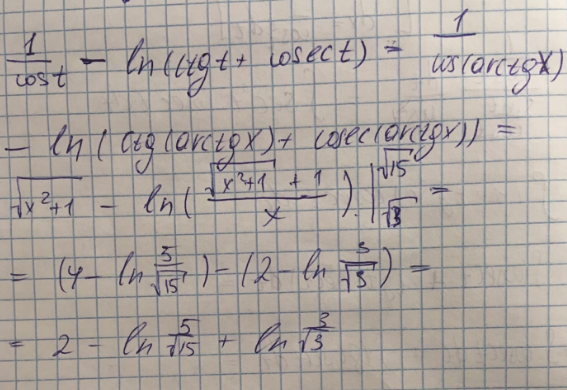 1/cos t - ln(ctg t + cosec t) = 1/cos(arctg x)
- ln(ctg(arctg x) + cosec(arctg x)) =
√(x²+1) - ln((√(x²+1) + 1)/x) |_√3^√15 =
= (4 - ln 5/√15) - (2 - ln 3/√3) =
= 2 - ln 5/√15 + ln 3/√3